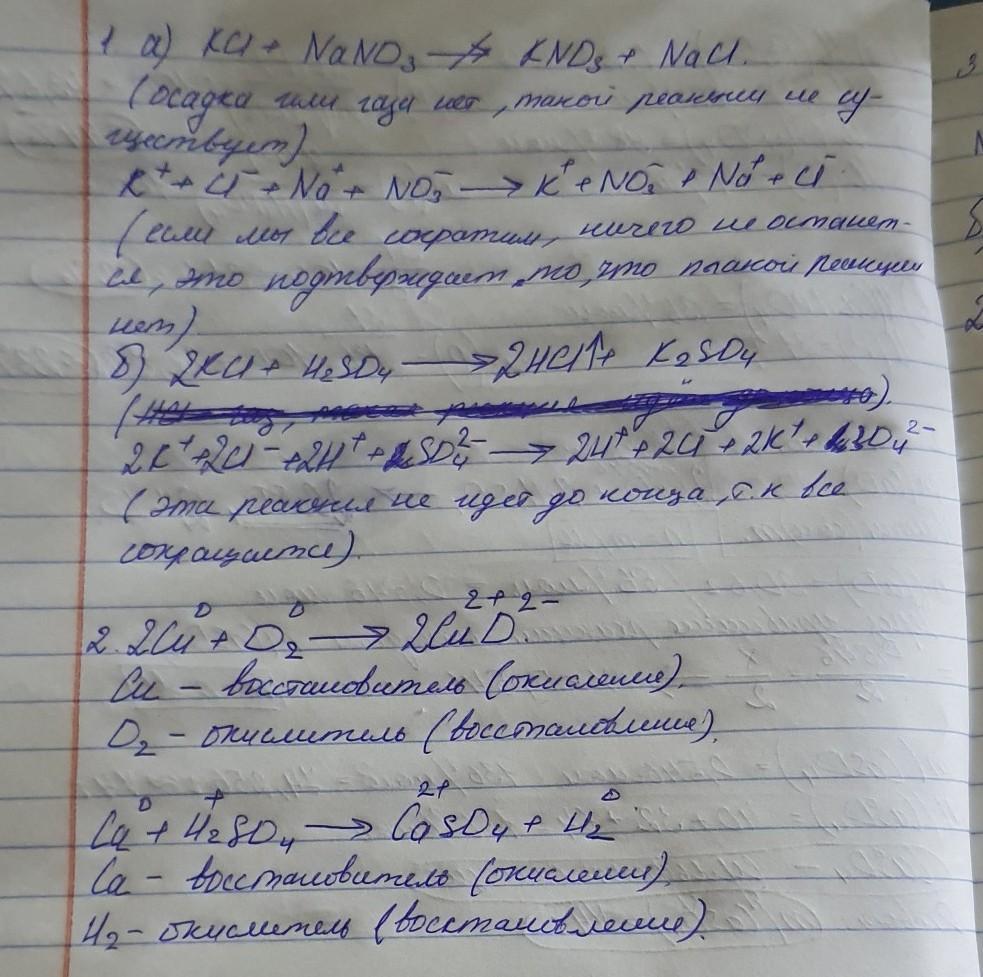 1 а) KCl + NaNO₃ ↛ KNO₃ + NaCl.
(осадка или газа нет, такой реакции не су-
ществует)
K⁺ + Cl⁻ + Na⁺ + NO₃⁻ → K⁺ + NO₃⁻ + Na⁺ + Cl⁻
(если мы все сократим, ничего не останет-
ся, это подтверждает то, что такой реакции
нет).
б) 2KCl + H₂SO₄ → 2HCl↑ + K₂SO₄
2K⁺ + 2Cl⁻ + 2H⁺ + SO₄²⁻ → 2H⁺ + 2Cl⁻ + 2K⁺ + SO₄²⁻
(эта реакция не идет до конца, т.к все
сокращается).
2. 2Cu⁰ + O₂⁰ → 2Cu²⁺O²⁻.
Cu – восстановитель (окисление).
O₂ – окислитель (восстановление).
Ca⁰ + H₂⁺SO₄ → Ca²⁺SO₄ + H₂⁰
Ca – восстановитель (окисление)
H₂ – окислитель (восктановление).
3